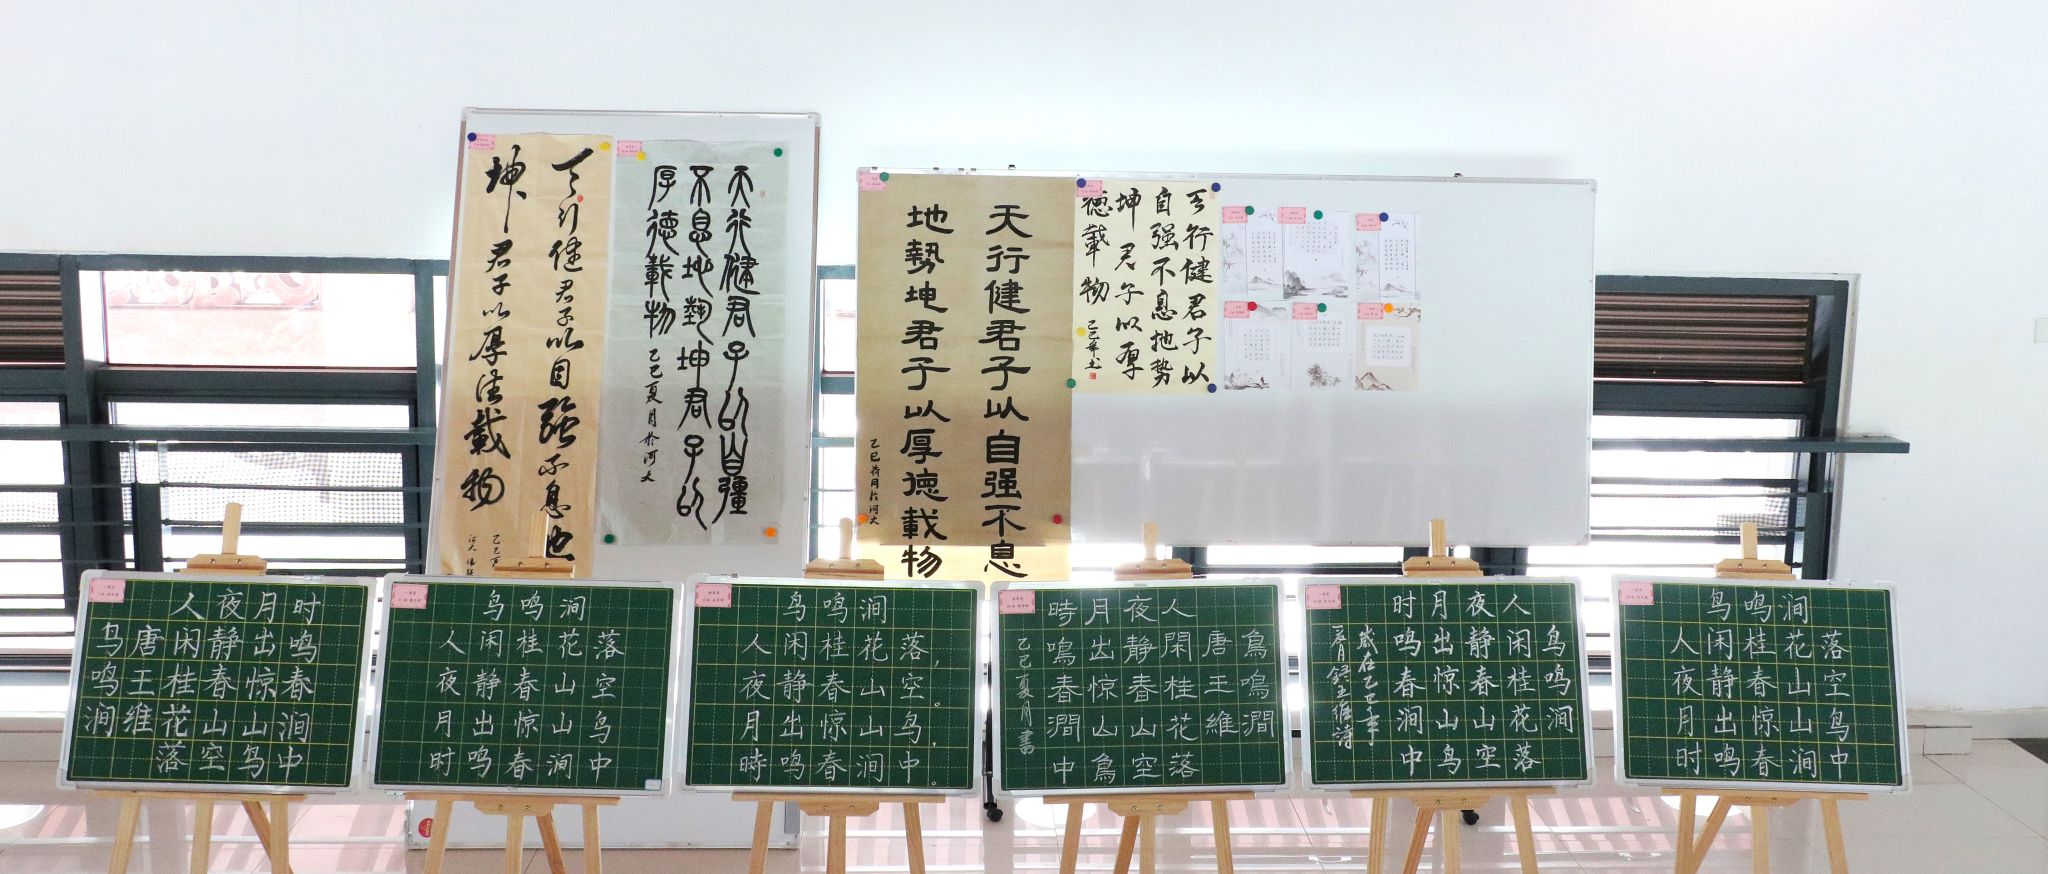 天行健君子以自强不息也
坤君子以厚德載物
天行健君子以自彊
不息地埶坤君子以
厚德載物
乙巳夏月於河大
天行健君子以自强不息
地勢坤君子以厚德載物
乙巳荷月於河大
天行健君子以
自强不息地势
坤君子以厚
德載物
鸟鸣涧
唐王维
人闲桂花落
夜静春山空
月出惊山鸟
时鸣春涧中
鸟鸣涧
人闲桂花落
夜静春山空
月出惊山鸟
时鸣春涧中
鸟鸣涧
人闲桂花落，
夜静春山空。
月出惊山鸟，
時鸣春涧中。
鳥鳴澗
唐王維
人閑桂花落
夜静春山空
月出惊山鳥
時鳴春澗中
乙巳夏月書
鸟鸣涧
人闲桂花落
夜静春山空
月出惊山鸟
时鸣春涧中
歲在乙巳年
夏月録王維詩
鸟鸣涧
人闲桂花落
夜静春山空
月出惊山鸟
时鸣春涧中